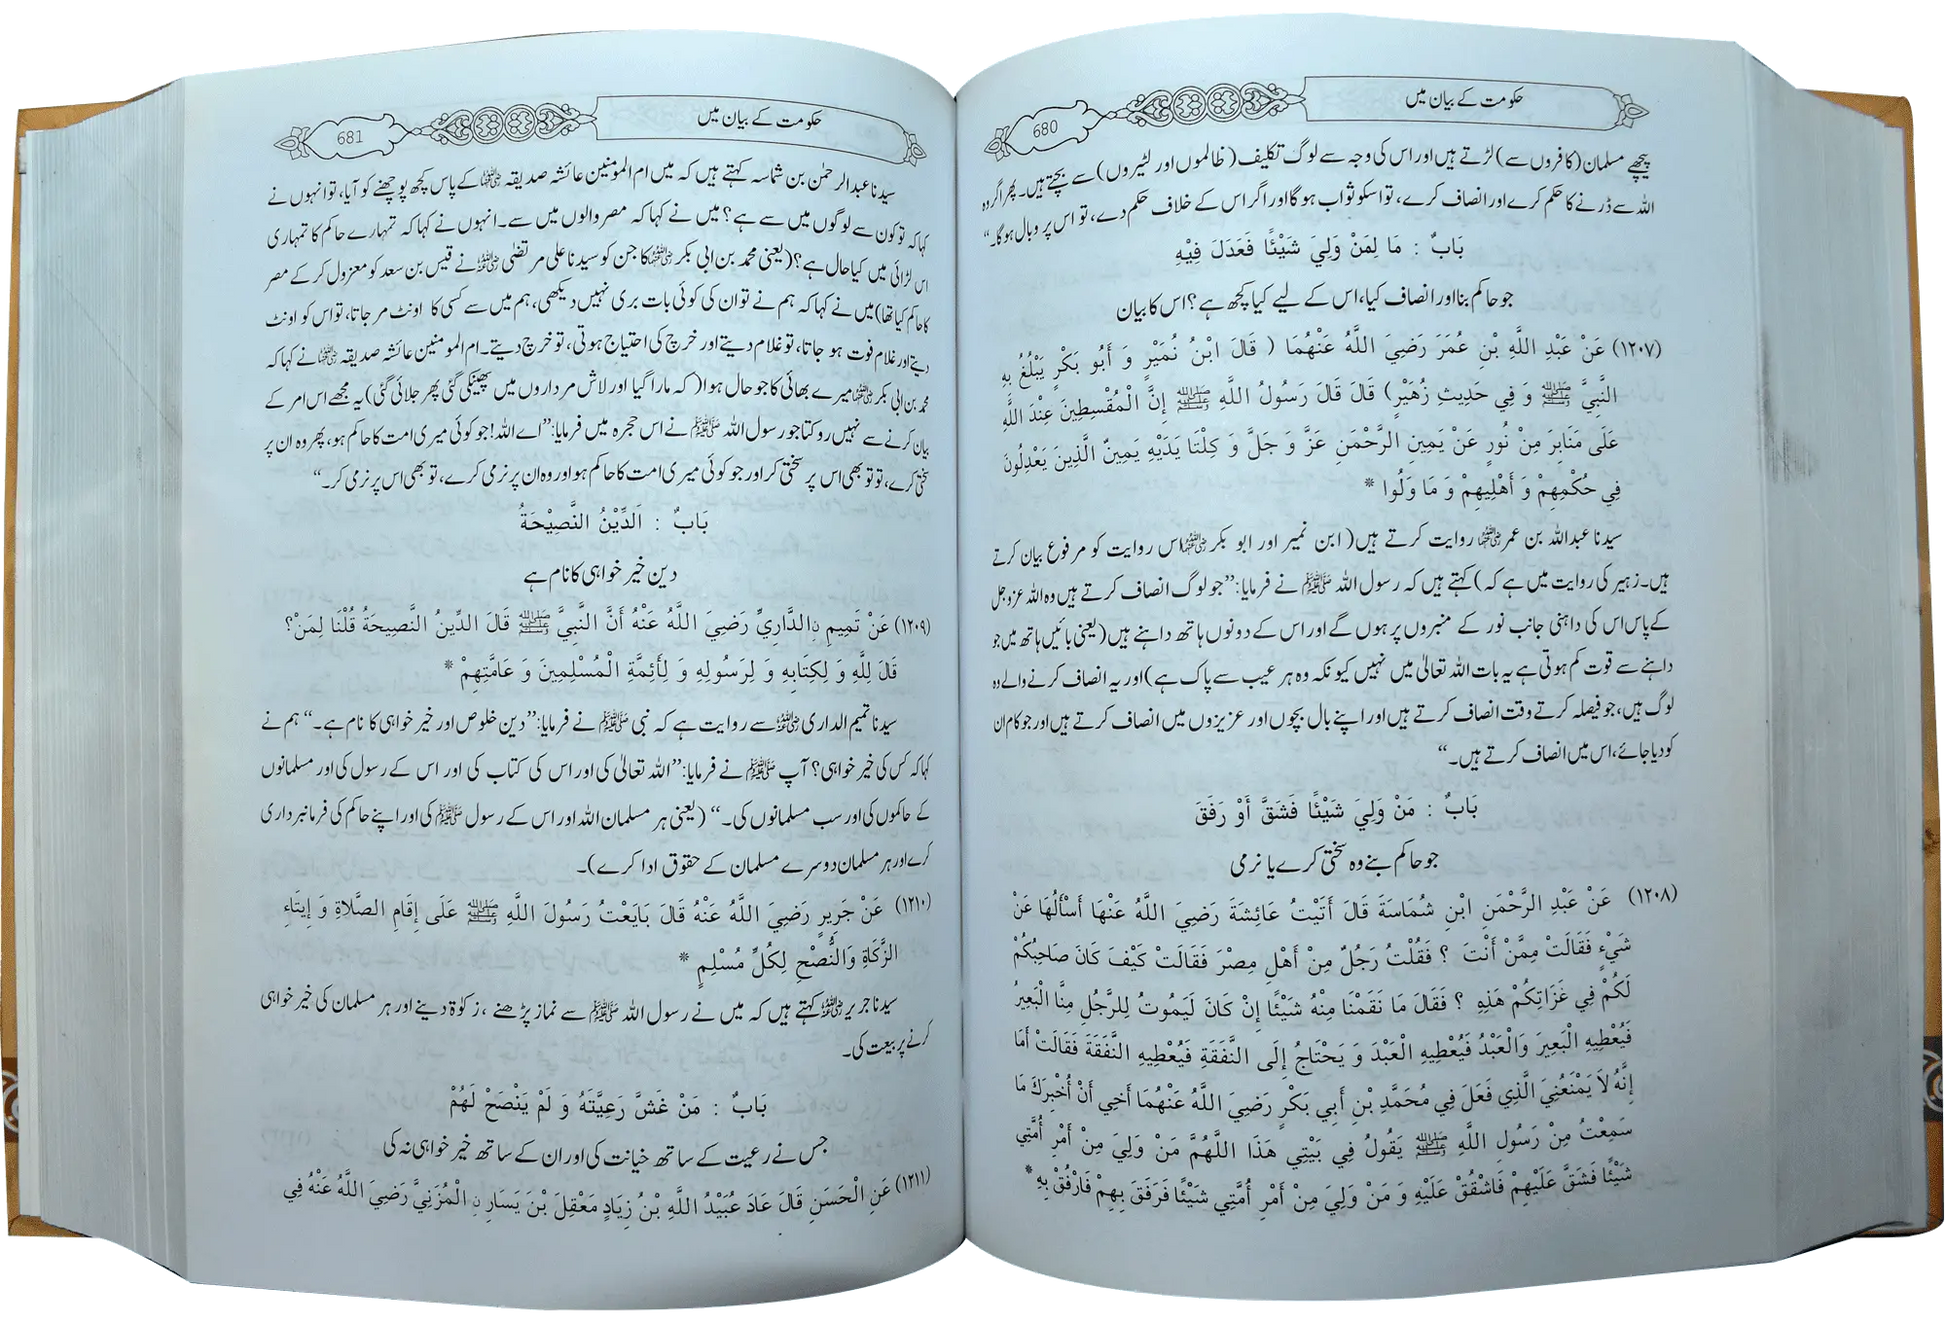 حکومت کے بیان میں
680
پیچھے مسلمان (کافروں سے) لڑتے ہیں اور اس کی وجہ سے لوگ تکلیف (ظالموں اور لٹیروں) سے بچتے ہیں۔ پھر اگر وہ
اللہ سے ڈرنے کا حکم کرے اور انصاف کرے، تو اسکو ثواب ہو گا اور اگر اس کے خلاف حکم دے، تو اس پر وبال ہو گا۔“
بَابٌ : مَا لِمَنْ وَلِيَ شَيْئًا فَعَدَلَ فِيْهِ
جو حاکم بنا اور انصاف کیا، اس کے لیے کیا کچھ ہے؟ اس کا بیان
(۱۲۰۷) عَنْ عَبْدِ اللَّهِ بْنِ عُمَرَ رَضِيَ اللَّهُ عَنْهُمَا ( قَالَ ابْنُ نُمَيْرٍ وَ أَبُو بَكْرٍ يَبْلُغُ بِهِ
النَّبِيَّ ﷺ وَ فِي حَدِيثِ زُهَيْرٍ) قَالَ قَالَ رَسُولُ اللَّهِ ﷺ إِنَّ الْمُقْسِطِينَ عِنْدَ اللَّهِ
عَلَى مَنَابِرَ مِنْ نُورٍ عَنْ يَمِينِ الرَّحْمَنِ عَزَّ وَ جَلَّ وَ كِلْتَا يَدَيْهِ يَمِينٌ الَّذِينَ يَعْدِلُونَ
فِي حُكْمِهِمْ وَ أَهْلِيهِمْ وَ مَا وَلُوا *
سیدنا عبداللہ بن عمر رضی اللہ عنہما روایت کرتے ہیں (ابن نمیر اور ابو بکر رضی اللہ عنہما اس روایت کو مرفوع بیان کرتے
ہیں۔ زہیر کی روایت میں ہے کہ) کہتے ہیں کہ رسول اللہ ﷺ نے فرمایا: ”جو لوگ انصاف کرتے ہیں وہ اللہ عزوجل
کے پاس اس کی داہنی جانب نور کے منبروں پر ہوں گے اور اس کے دونوں ہاتھ داہنے ہیں (یعنی بائیں ہاتھ میں جو
داہنے سے قوت کم ہوتی ہے یہ بات اللہ تعالیٰ میں نہیں کیونکہ وہ ہر عیب سے پاک ہے) اور یہ انصاف کرنے والے وہ
لوگ ہیں، جو فیصلہ کرتے وقت انصاف کرتے ہیں اور اپنے بال بچوں اور عزیزوں میں انصاف کرتے ہیں اور جو کام ان
کو دیا جائے، اس میں انصاف کرتے ہیں۔“
بَابٌ : مَنْ وَلِيَ شَيْئًا فَشَقَّ أَوْ رَفَقَ
جو حاکم بنے وہ سختی کرے یا نرمی
(۱۲۰۸) عَنْ عَبْدِ الرَّحْمَنِ ابْنِ شُمَاسَةَ قَالَ أَتَيْتُ عَائِشَةَ رَضِيَ اللَّهُ عَنْهَا أَسْأَلُهَا عَنْ
شَيْءٍ فَقَالَتْ مِمَّنْ أَنْتَ ؟ فَقُلْتُ رَجُلٌ مِنْ أَهْلِ مِصْرَ فَقَالَتْ كَيْفَ كَانَ صَاحِبُكُمْ
لَكُمْ فِي غَزَاتِكُمْ هَذِهِ ؟ فَقَالَ مَا نَقَمْنَا مِنْهُ شَيْئًا إِنْ كَانَ لَيَمُوتُ لِلرَّجُلِ مِنَّا الْبَعِيرُ
فَيُعْطِيهِ الْبَعِيرَ وَالْعَبْدُ فَيُعْطِيهِ الْعَبْدَ وَ يَحْتَاجُ إِلَى النَّفَقَةِ فَيُعْطِيهِ النَّفَقَةَ فَقَالَتْ أَمَا
إِنَّهُ لَا يَمْنَعُنِيَ الَّذِي فَعَلَ فِي مُحَمَّدِ بْنِ أَبِي بَكْرٍ رَضِيَ اللَّهُ عَنْهُمَا أَخِي أَنْ أُخْبِرَكَ مَا
سَمِعْتُ مِنْ رَسُولِ اللَّهِ ﷺ يَقُولُ فِي بَيْتِي هَذَا اللَّهُمَّ مَنْ وَلِيَ مِنْ أَمْرِ أُمَّتِي
شَيْئًا فَشَقَّ عَلَيْهِمْ فَاشْقُقْ عَلَيْهِ وَ مَنْ وَلِيَ مِنْ أَمْرِ أُمَّتِي شَيْئًا فَرَفَقَ بِهِمْ فَارْفُقْ بِهِ *
حکومت کے بیان میں
681
سیدنا عبدالرحمٰن بن شماسہ کہتے ہیں کہ میں ام المومنین عائشہ صدیقہ رضی اللہ عنہا کے پاس کچھ پوچھنے کو آیا، تو انہوں نے
کہا کہ تو کون سے لوگوں میں سے ہے؟ میں نے کہا کہ مصر والوں میں سے۔ انہوں نے کہا کہ تمہارے حاکم کا تمہاری
اس لڑائی میں کیا حال ہے؟ (یعنی محمد بن ابی بکر رضی اللہ عنہما کا جن کو سیدنا علی مرتضیٰ رضی اللہ عنہ نے قیس بن سعد کو معزول کر کے مصر
کا حاکم کیا تھا) میں نے کہا کہ ہم نے تو ان کی کوئی بات بری نہیں دیکھی، ہم میں سے کسی کا اونٹ مر جاتا، تو اس کو اونٹ
دیتے اور غلام فوت ہو جاتا، تو غلام دیتے اور خرچ کی احتیاج ہوتی، تو خرچ دیتے۔ ام المومنین عائشہ صدیقہ رضی اللہ عنہا نے کہا کہ
محمد بن ابی بکر رضی اللہ عنہما میرے بھائی کا جو حال ہوا (کہ مارا گیا اور لاش مرداروں میں پھینکی گئی پھر جلائی گئی) یہ مجھے اس امر کے
بیان کرنے سے نہیں روکتا جو رسول اللہ ﷺ نے اس حجرہ میں فرمایا: ”اے اللہ! جو کوئی میری امت کا حاکم ہو، پھر وہ ان پر
سختی کرے، تو تو بھی اس پر سختی کر اور جو کوئی میری امت کا حاکم ہو اور وہ ان پر نرمی کرے، تو بھی اس پر نرمی کر۔“
بَابٌ : اَلدِّيْنُ النَّصِيْحَةُ
دین خیر خواہی کا نام ہے
(۱۲۰۹) عَنْ تَمِيمِ نِالدَّارِيِّ رَضِيَ اللَّهُ عَنْهُ أَنَّ النَّبِيَّ ﷺ قَالَ الدِّينُ النَّصِيحَةُ قُلْنَا لِمَنْ؟
قَالَ لِلَّهِ وَ لِكِتَابِهِ وَ لِرَسُولِهِ وَ لِأَئِمَّةِ الْمُسْلِمِينَ وَ عَامَّتِهِمْ *
سیدنا تمیم الداری رضی اللہ عنہ سے روایت ہے کہ نبی ﷺ نے فرمایا: ”دین خلوص اور خیر خواہی کا نام ہے۔“ ہم نے
کہا کہ کس کی خیر خواہی؟ آپ ﷺ نے فرمایا: ”اللہ تعالیٰ کی اور اس کی کتاب کی اور اس کے رسول کی اور مسلمانوں
کے حاکموں کی اور سب مسلمانوں کی۔“ (یعنی ہر مسلمان اللہ اور اس کے رسول ﷺ کی اور اپنے حاکم کی فرمانبرداری
کرے اور ہر مسلمان دوسرے مسلمان کے حقوق ادا کرے)۔
(۱۲۱۰) عَنْ جَرِيرٍ رَضِيَ اللَّهُ عَنْهُ قَالَ بَايَعْتُ رَسُولَ اللَّهِ ﷺ عَلَى إِقَامِ الصَّلَاةِ وَ إِيتَاءِ
الزَّكَاةِ وَالنُّصْحِ لِكُلِّ مُسْلِمٍ *
سیدنا جریر رضی اللہ عنہ کہتے ہیں کہ میں نے رسول اللہ ﷺ سے نماز پڑھنے ، زکوٰة دینے اور ہر مسلمان کی خیر خواہی
کرنے پر بیعت کی۔
بَابٌ : مَنْ غَشَّ رَعِيَّتَهُ وَ لَمْ يَنْصَحْ لَهُمْ
جس نے رعیت کے ساتھ خیانت کی اور ان کے ساتھ خیر خواہی نہ کی
(۱۲۱۱) عَنِ الْحَسَنِ قَالَ عَادَ عُبَيْدُ اللَّهِ بْنُ زِيَادٍ مَعْقِلَ بْنَ يَسَارِ نِ الْمُزَنِيَّ رَضِيَ اللَّهُ عَنْهُ فِي